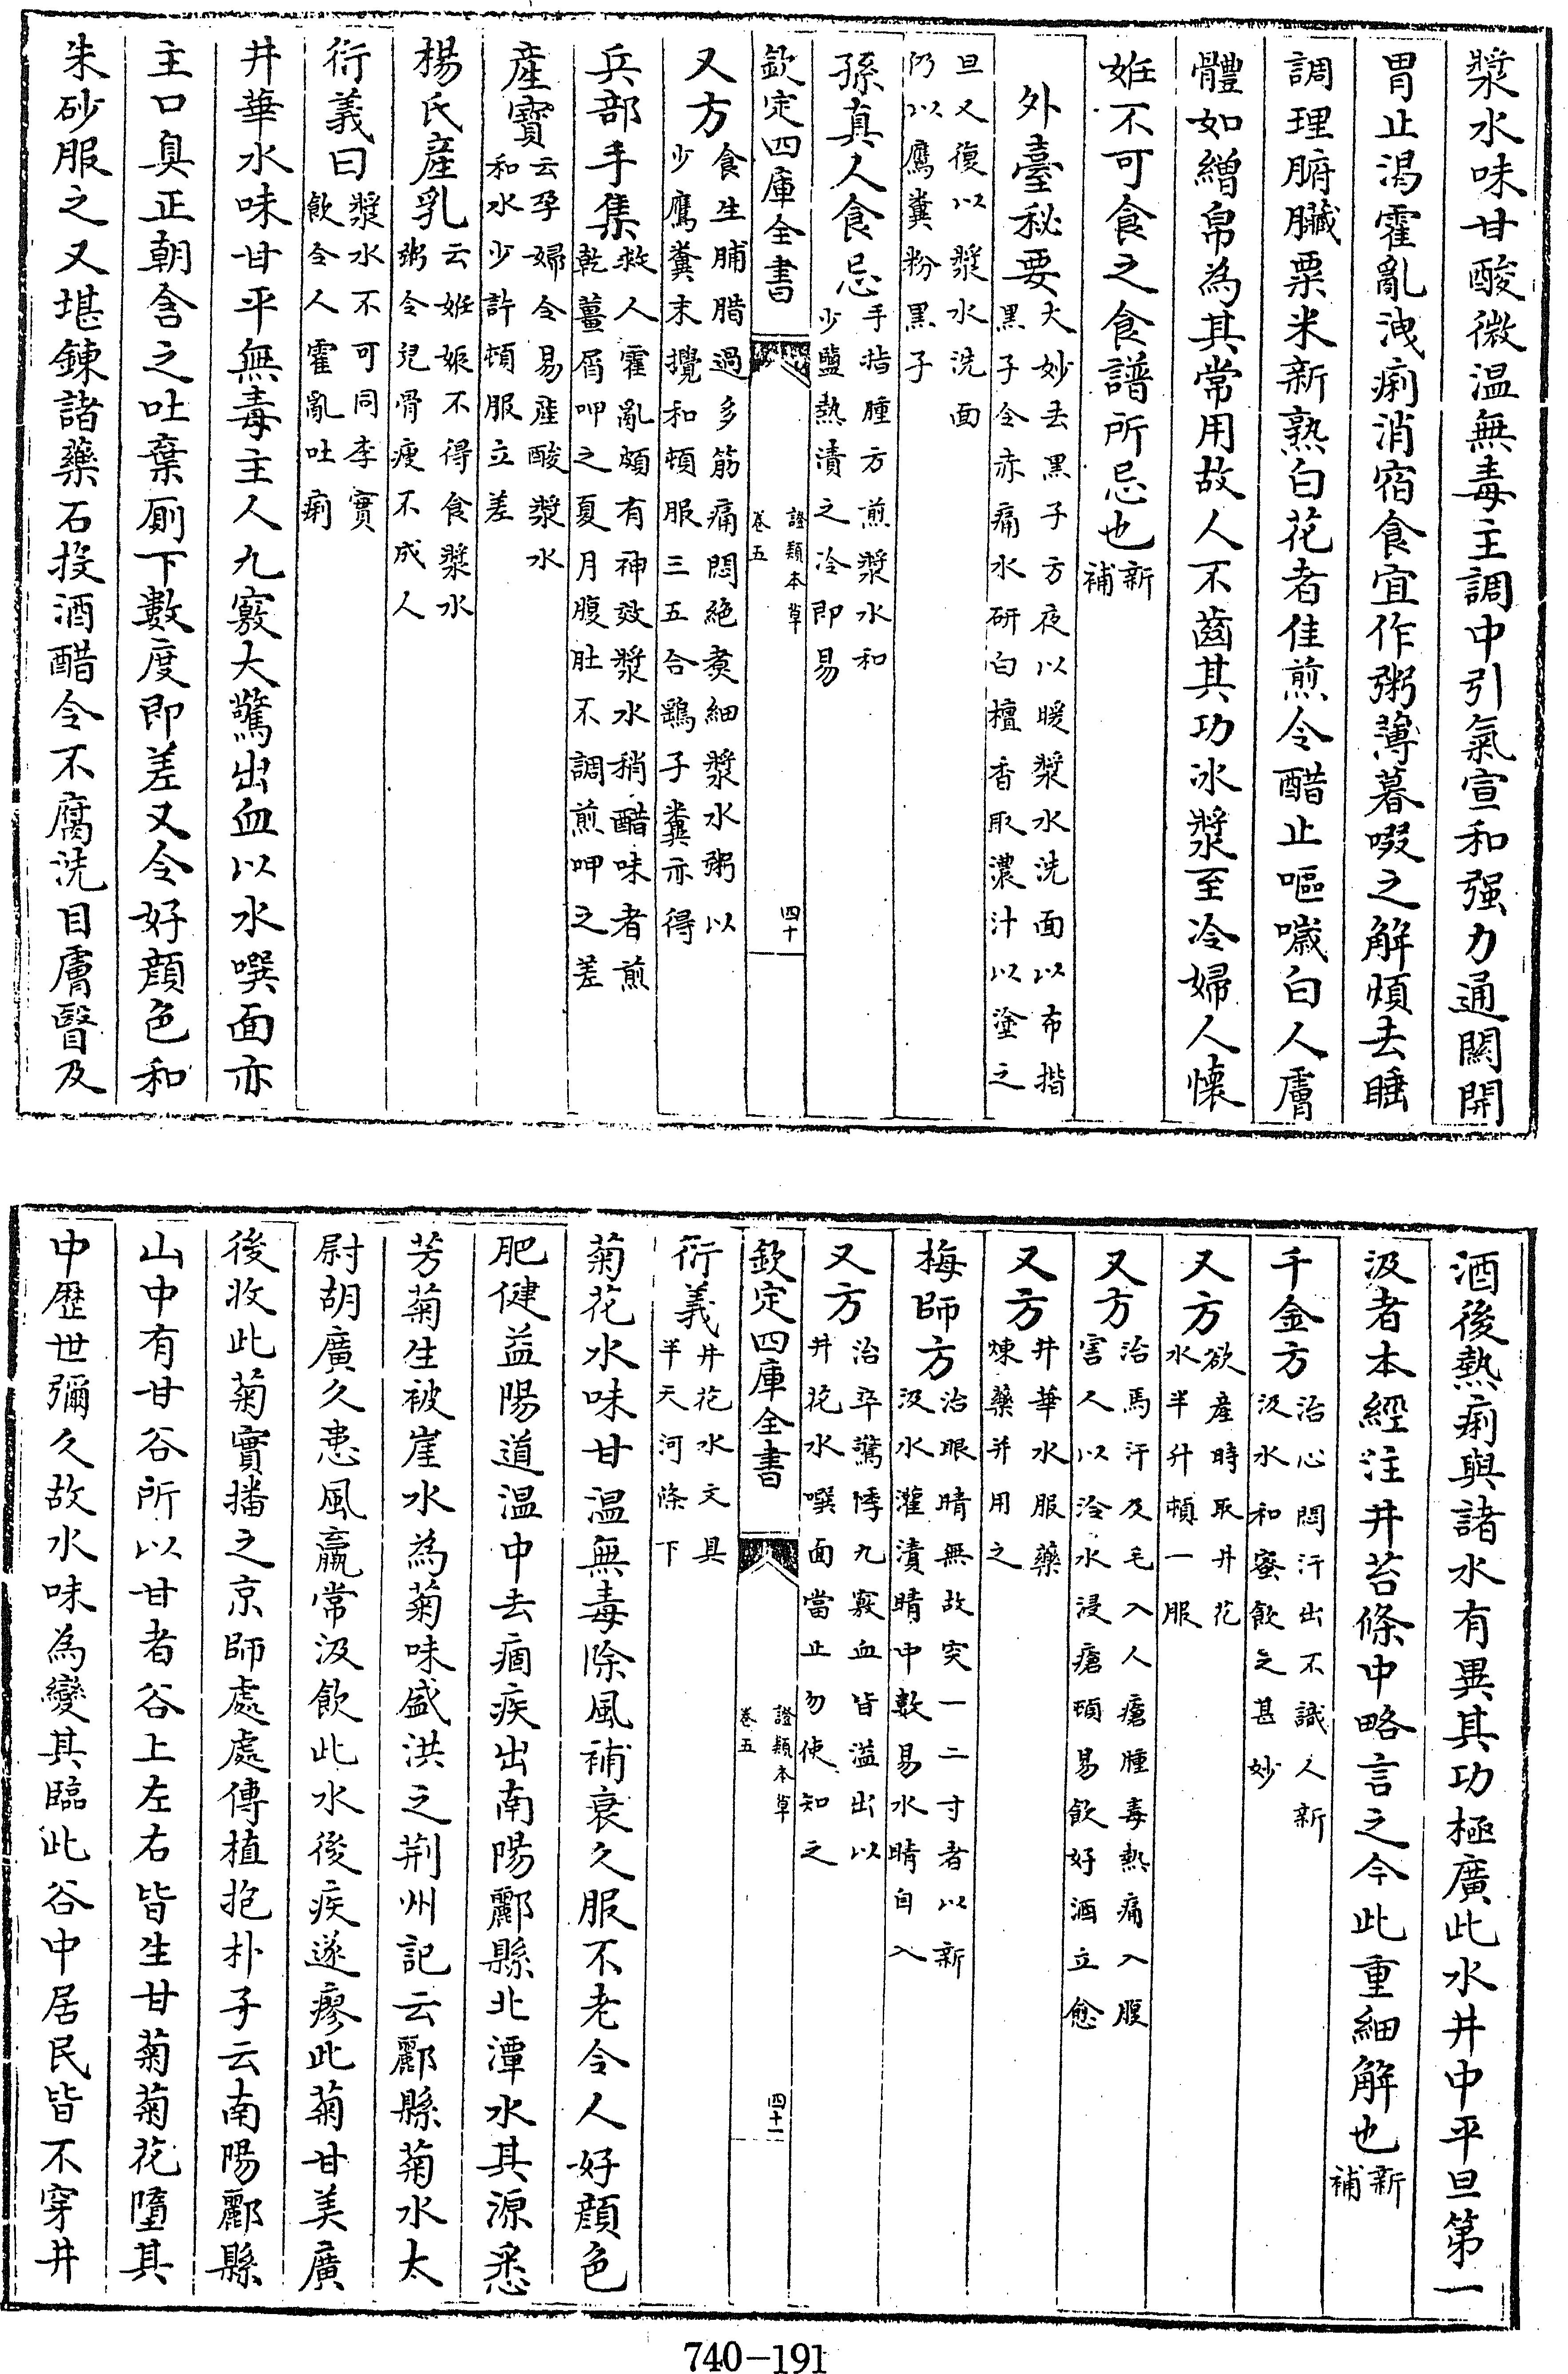 漿水味甘酸微温無毒主調中引氣宣和强力通關開
胃止渴霍亂洩痢消宿食宜作粥薄暮啜之解煩去睡
調理腑臟粟米新熟白花者佳煎令醋止嘔噦白人膚
體如繒帛為其常用故人不齒其功冰漿至冷婦人懷
姙不可食之食譜所忌也新補
外臺秘要大妙去黑子方夜以暖漿水洗面以布揩
黑子令赤痛水研白檀香取濃汁以塗之
旦又復以漿水洗面
仍以鷹糞粉黑子
孫真人食忌手指腫方煎漿水和
少鹽熱漬之冷即易
欽定四庫全書
證類本草
卷五
四十
又方食生脯腊過多筋痛悶絶煑細漿水粥以
少鷹糞末攪和頓服三五合鷄子糞亦得
兵部手集救人霍亂頗有神效漿水稍醋味者煎
乾薑屑呷之夏月腹肚不調煎呷之差
産寶云孕婦令易産酸漿水
和水少許頓服立差
楊氏産乳云姙娠不得食漿水
粥令兒骨瘦不成人
衍義曰漿水不可同李實
飲令人霍亂吐痢
井華水味甘平無毒主人九竅大驚出血以水噀面亦
主口臭正朝含之吐棄厠下數度即差又令好顔色和
朱砂服之又堪鍊諸藥石投酒醋令不腐洗目膚翳及
酒後熱痢與諸水有異其功極廣此水井中平旦第一
汲者本經注井苔條中略言之今此重細解也新補
千金方治心悶汗出不識人新
汲水和蜜飲之甚妙
又方欲産時取井花
水半升頓一服
又方治馬汗及毛入人瘡腫毒熱痛入腹
害人以冷水浸瘡頓易飲好酒立愈
又方井華水服藥
煉藥并用之
梅師方治眼睛無故突一二寸者以新
汲水灌漬睛中數易水睛自入
又方治卒驚悸九竅血皆溢出以
井花水噀面當止勿使知之
欽定四庫全書
證類本草
卷五
四十一
衍義井花水文具
半天河條下
菊花水味甘温無毒除風補衰久服不老令人好顔色
肥健益陽道温中去痼疾出南陽酈縣北潭水其源悉
芳菊生被崖水為菊味盛洪之荆州記云酈縣菊水太
尉胡廣久患風羸常汲飲此水後疾遂瘳此菊甘美廣
後收此菊實播之京師處處傳植抱朴子云南陽酈縣
山中有甘谷所以甘者谷上左右皆生甘菊菊花墮其
中歷世彌久故水味為變其臨此谷中居民皆不穿井
740-191